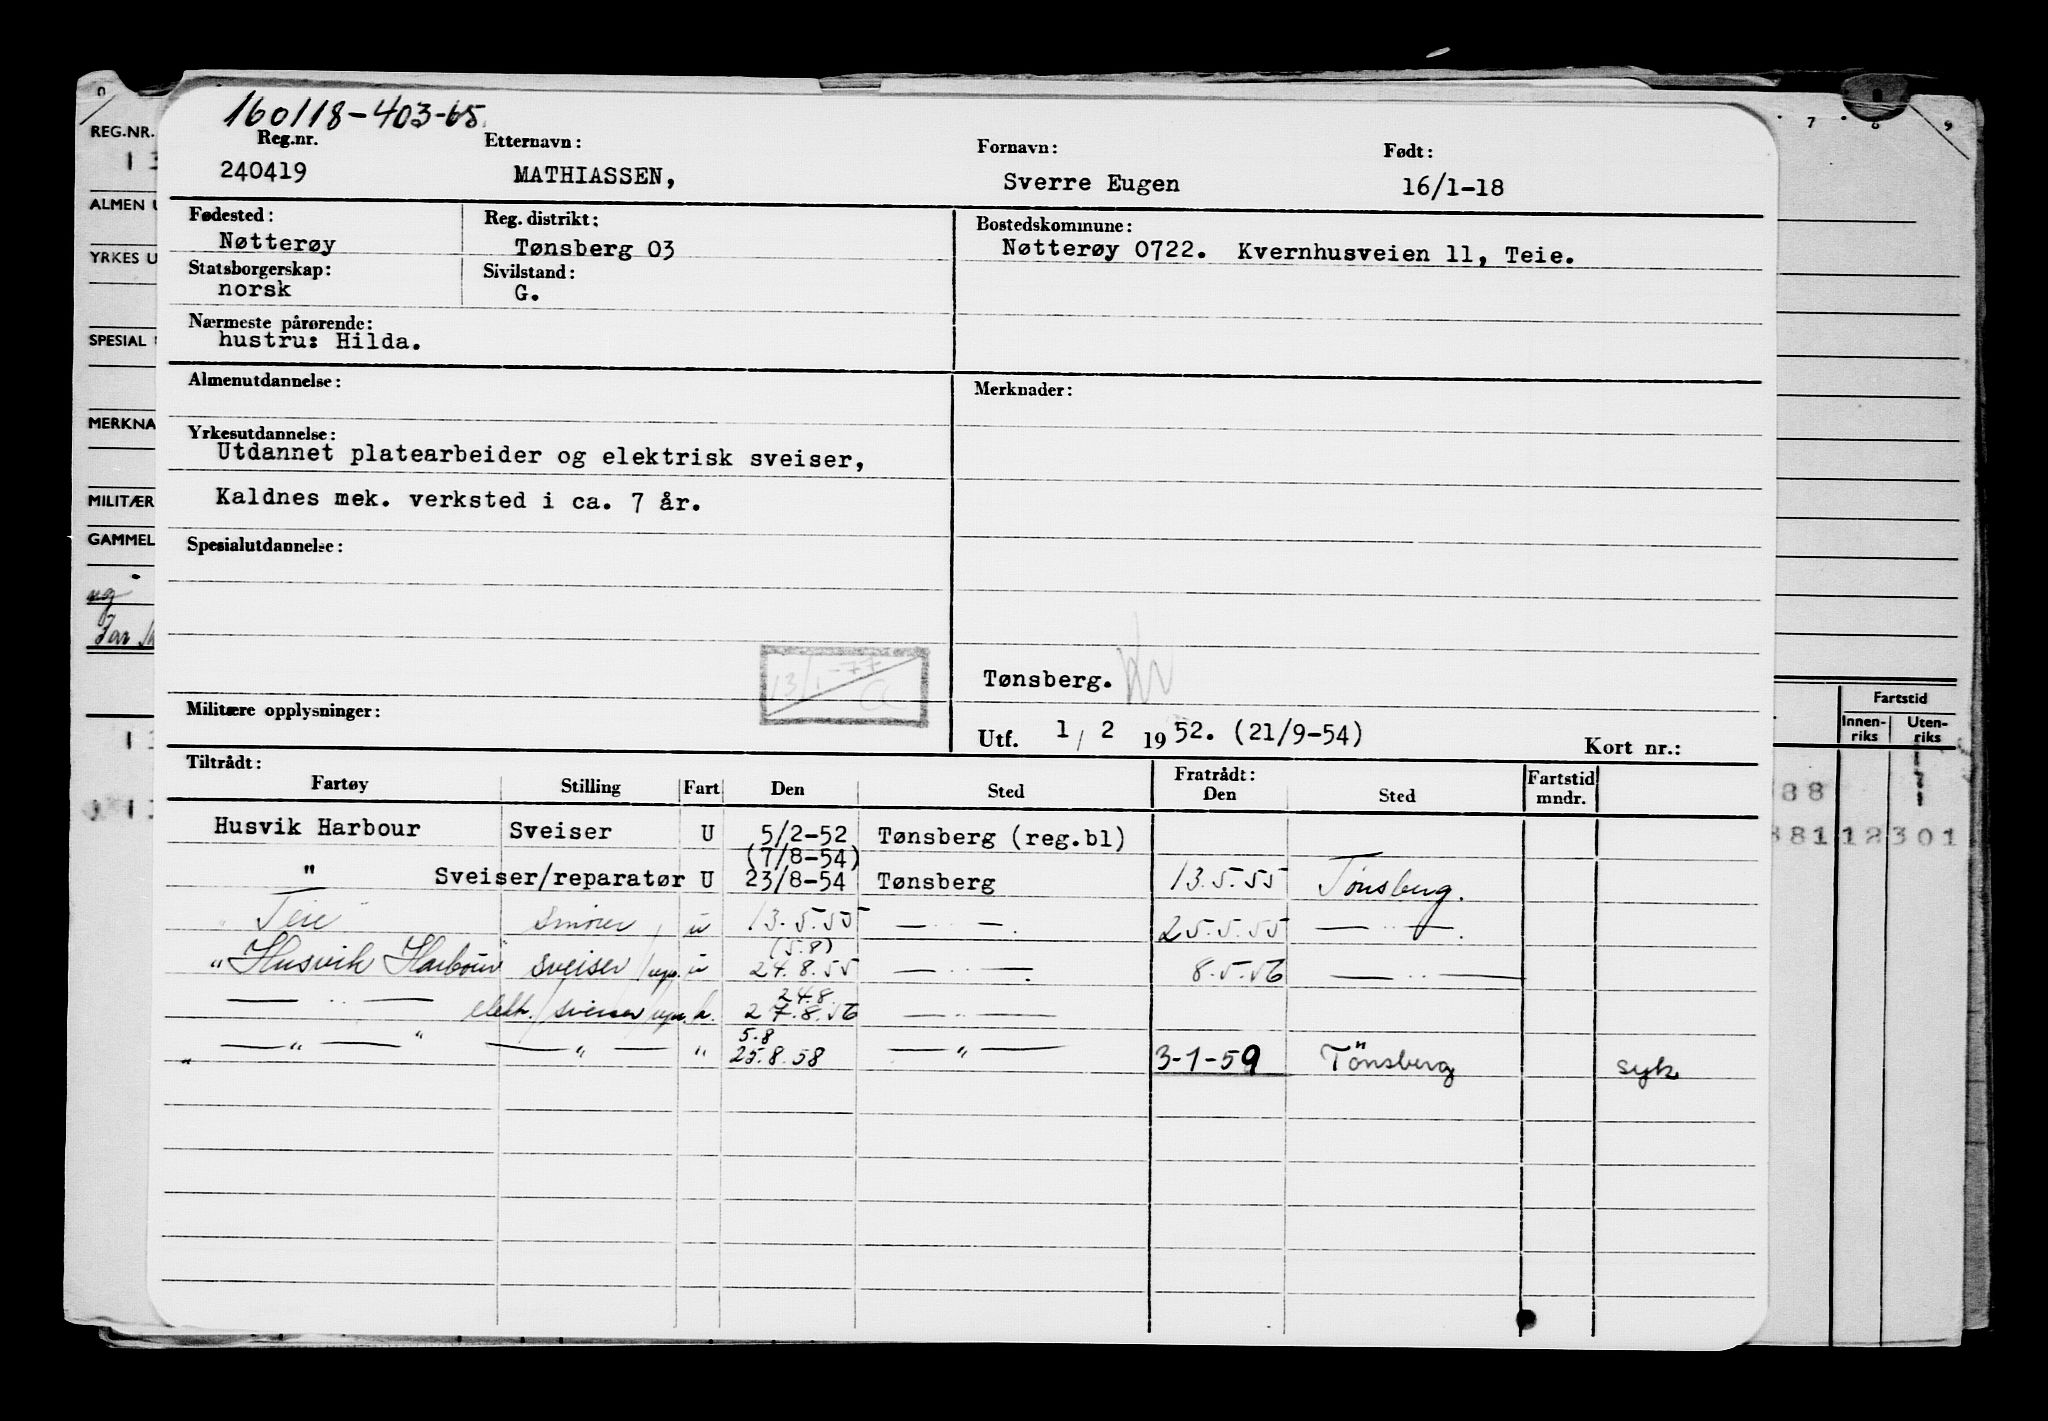 160118-403-65
Reg.nr. Etternavn: Fornavn: Født:
240419 MATHIASSEN, Sverre Eugen 16/1-18
Fødested: Reg. distrikt: Bostedskommune:
Nøtterøy Tønsberg 03 Nøtterøy 0722. Kvernhusveien 11, Teie.
Statsborgerskap: Sivilstand:
norsk G.
Nærmeste pårørende:
hustru: Hilda.
Almenutdannelse: Merknader:
Yrkesutdannelse:
Utdannet platearbeider og elektrisk sveiser,
Kaldnes mek. verksted i ca. 7 år.
Spesialutdannelse:
13/1-77
Tønsberg.
Militære opplysninger:
Utf. 1/2 1952. (21/9-54) Kort nr.:
Tiltrådt: Fratrådt: Fartstid
Fartøy Stilling Fart Den Sted Den Sted mndr.
Husvik Harbour Sveiser U 5/2-52 Tønsberg (reg.bl)
(7/8-54)
" Sveiser/reparatør U 23/8-54 Tønsberg 13.5.55 Tønsberg.
"Teie" Smører u 13.5.55 — " —. 25.5.55 — " —.
(5.8)
"Husvik Harbour" sveiser/rep. u 24.8.55 — " —. 8.5.56 — " —
24.8
— " — elektr./sveiser/rep. u. 27.8.56 — " —
5.8
„ — " — " — " — " 25.8.58 — " — 3-1-59 Tönsberg syk
REG.NR.
ALMEN U
YRKES U
SPESIAL
MERKNA
MILITÆR
GAMMEL
0 7 8 9
Fartstid
Innen-riks Uten-riks
88
381 12 301